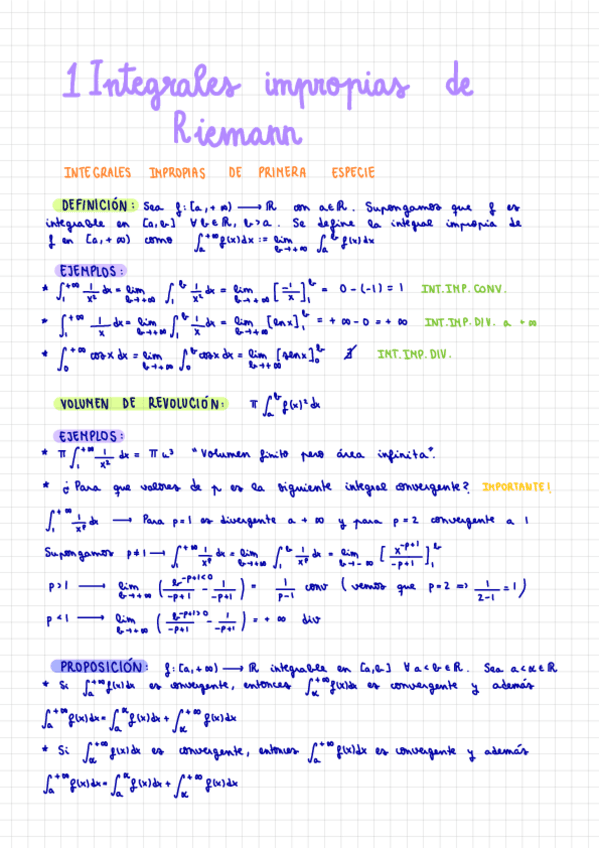 1 Integrales impropias de
Riemann
INTEGRALES IMPROPIAS DE PRIMERA ESPECIE
DEFINICIÓN: Sea f: [a, +∞) ⟶ ℝ con a∈ℝ. Supongamos que f es
integrable en [a,b] ∀b∈ℝ, b>a. Se define la integral impropia de
f en [a,+∞) como ∫_a^{+∞} f(x)dx := lim_{b→+∞} ∫_a^b f(x)dx
EJEMPLOS:
* ∫_1^{+∞} 1/x² dx = lim_{b→+∞} ∫_1^b 1/x² dx = lim_{b→+∞} [-1/x]_1^b = 0-(-1) = 1 INT.IMP.CONV.
* ∫_1^{+∞} 1/x dx = lim_{b→+∞} ∫_1^b 1/x dx = lim_{b→+∞} [lnx]_1^b = +∞ - 0 = +∞ INT.IMP.DIV. a +∞
* ∫_0^{+∞} cosx dx = lim_{b→+∞} ∫_0^b cosx dx = lim_{b→+∞} [senx]_0^b ∄ INT.IMP.DIV.
VOLUMEN DE REVOLUCIÓN: π ∫_a^b f(x)² dx
EJEMPLOS:
* π ∫_1^{+∞} 1/x² dx = π u³ "Volumen finito pero área infinita".
* ¿Para que valores de p es la siguiente integral convergente? IMPORTANTE!
∫_1^{+∞} 1/x^p dx ⟶ Para p=1 es divergente a +∞ y para p=2 convergente a 1
Supongamos p≠1 ⟶ ∫_1^{+∞} 1/x^p dx = lim_{b→+∞} ∫_1^b 1/x^p dx = lim_{b→-∞} [x^{-p+1}/(-p+1)]_1^b
p>1 ⟶ lim_{b→+∞} (b^{-p+1<0}/(-p+1) - 1/(-p+1)) = 1/(p-1) conv (vemos que p=2 => 1/(2-1) = 1)
p<1 ⟶ lim_{b→+∞} (b^{-p+1>0}/(-p+1) - 1/(-p+1)) = +∞ div
PROPOSICIÓN: f: [a,+∞) ⟶ ℝ integrable en [a,b] ∀ a<b∈ℝ. Sea a<α∈ℝ
* Si ∫_a^{+∞} f(x)dx es convergente, entonces ∫_α^{+∞} f(x)dx es convergente y además
∫_a^{+∞} f(x)dx = ∫_a^α f(x)dx + ∫_α^{+∞} f(x)dx
* Si ∫_α^{+∞} f(x)dx es convergente, entonces ∫_a^{+∞} f(x)dx es convergente y además
∫_a^{+∞} f(x)dx = ∫_a^α f(x)dx + ∫_α^{+∞} f(x)dx